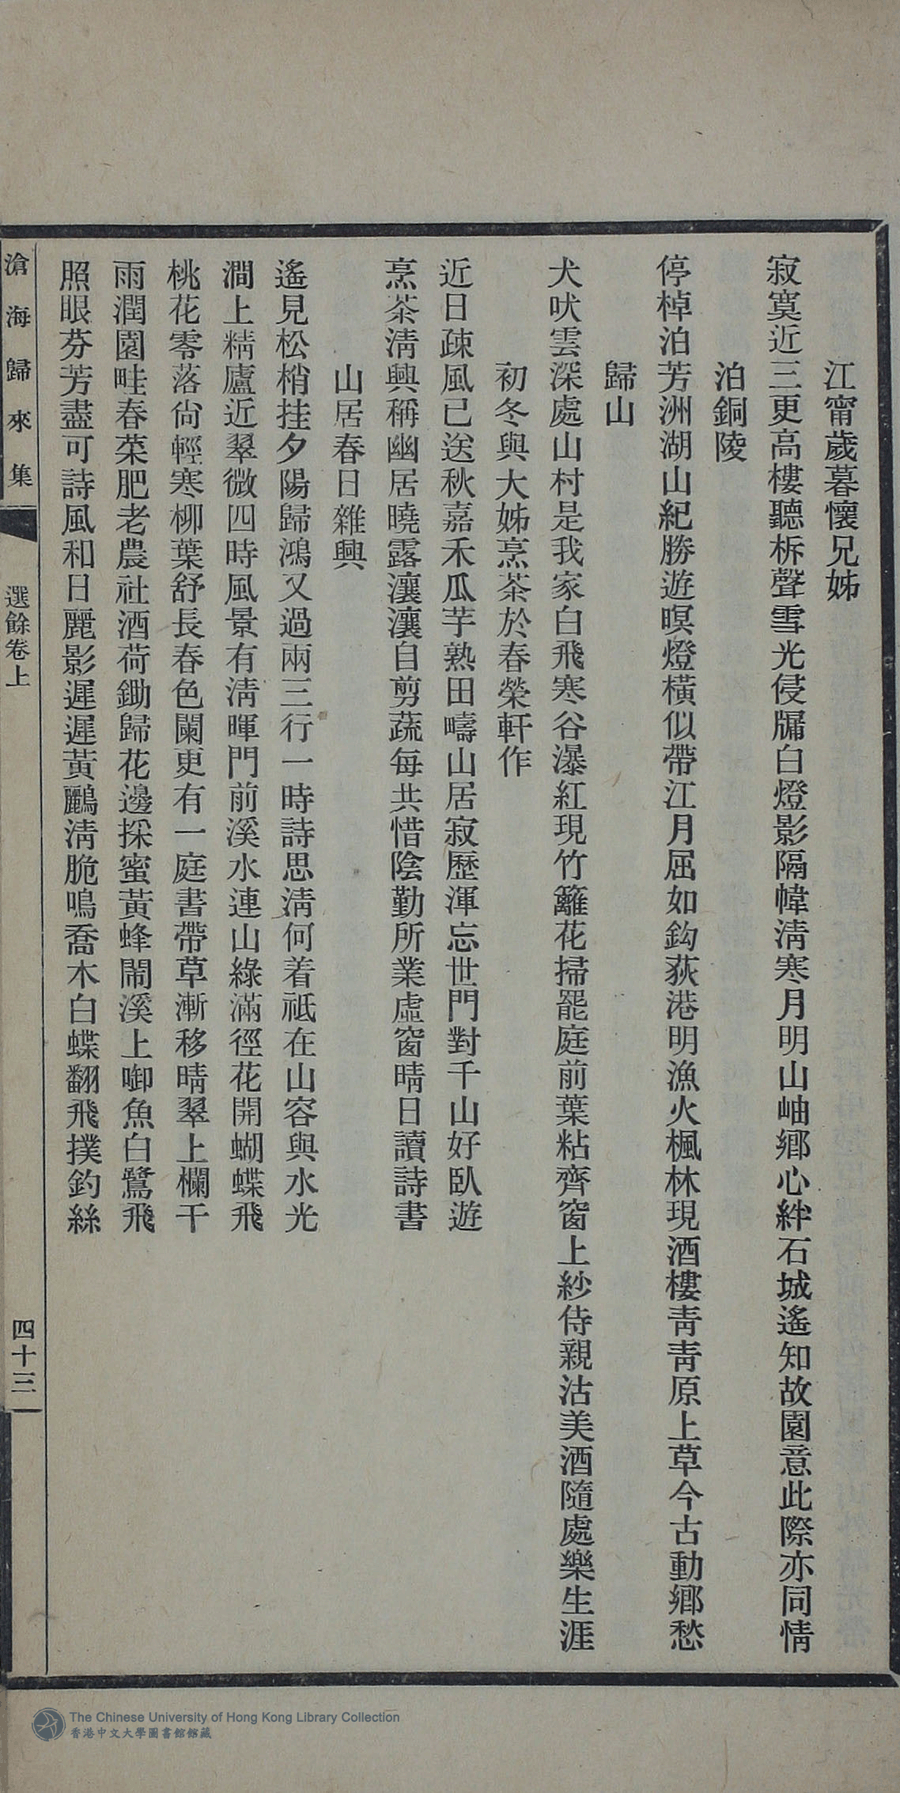 江甯歲暮懷兄姊
寂寞近三更高樓聽柝聲雪光侵牖白燈影隔幃淸寒月明山岫鄕心絆石城遙知故園意此際亦同情
泊銅陵
停棹泊芳洲湖山紀勝遊暝燈橫似帶江月屈如鈎荻港明漁火楓林現酒樓靑靑原上草今古動鄕愁
歸山
犬吠雲深處山村是我家白飛寒谷瀑紅現竹籬花掃罷庭前葉粘齊窗上紗侍親沽美酒隨處樂生涯
初冬與大姊烹茶於春榮軒作
近日疎風已送秋嘉禾瓜芋熟田疇山居寂歷渾忘世門對千山好臥遊
烹茶淸興稱幽居曉露瀼瀼自剪蔬每共惜陰勤所業虛窗晴日讀詩書
山居春日雜興
遙見松梢挂夕陽歸鴻又過兩三行一時詩思淸何着祗在山容與水光
澗上精廬近翠微四時風景有淸暉門前溪水連山綠滿徑花開蝴蝶飛
桃花零落尙輕寒柳葉舒長春色闌更有一庭書帶草漸移晴翠上欄干
雨潤園畦春菜肥老農社酒荷鋤歸花邊採蜜黃蜂鬧溪上啣魚白鷺飛
照眼芬芳盡可詩風和日麗影遲遲黃鸝淸脆鳴喬木白蝶翻飛撲釣絲
滄海歸來集
選餘卷上
四十三
The Chinese University of Hong Kong Library Collection
香港中文大學圖書館館藏